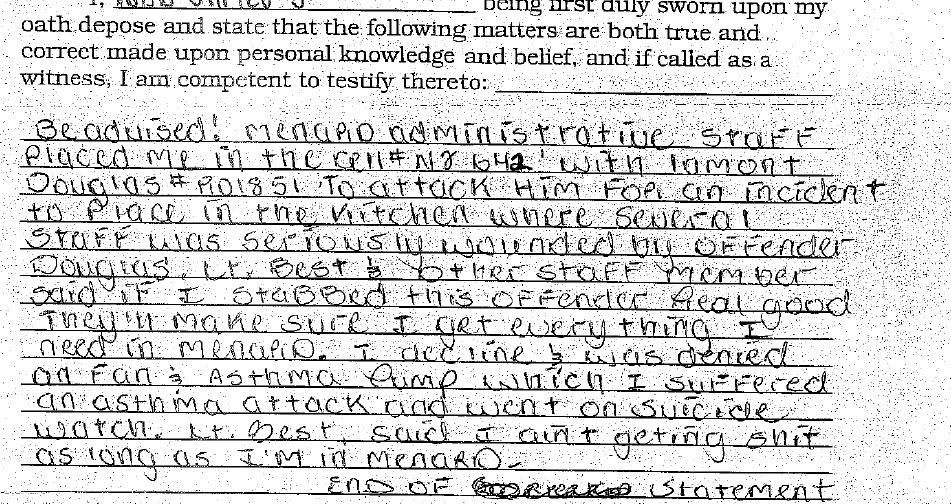 being first duly sworn upon my
oath depose and state that the following matters are both true and
correct made upon personal knowledge and belief, and if called as a
witness, I am competent to testify thereto:
Be advised! MENARD administrative Staff
Placed me in the cell# N2 642 with lamont
Douglas # R01851 To attack Him For an incident
to place in the kitchen where Several
Staff was seriously wounded by OFFender
Douglas. Lt. Best & other staff member
said iF I StaBBed this OFFender Real good
They'll make sure I get everything I
need in MENARD. I decline & was denied
an Fan & Asthma Pump which I suffered
an asthma attack and went on suicide
watch. Lt. Best, said I ain't geting shit
as long as I'm in MENARD.
END OF Statement